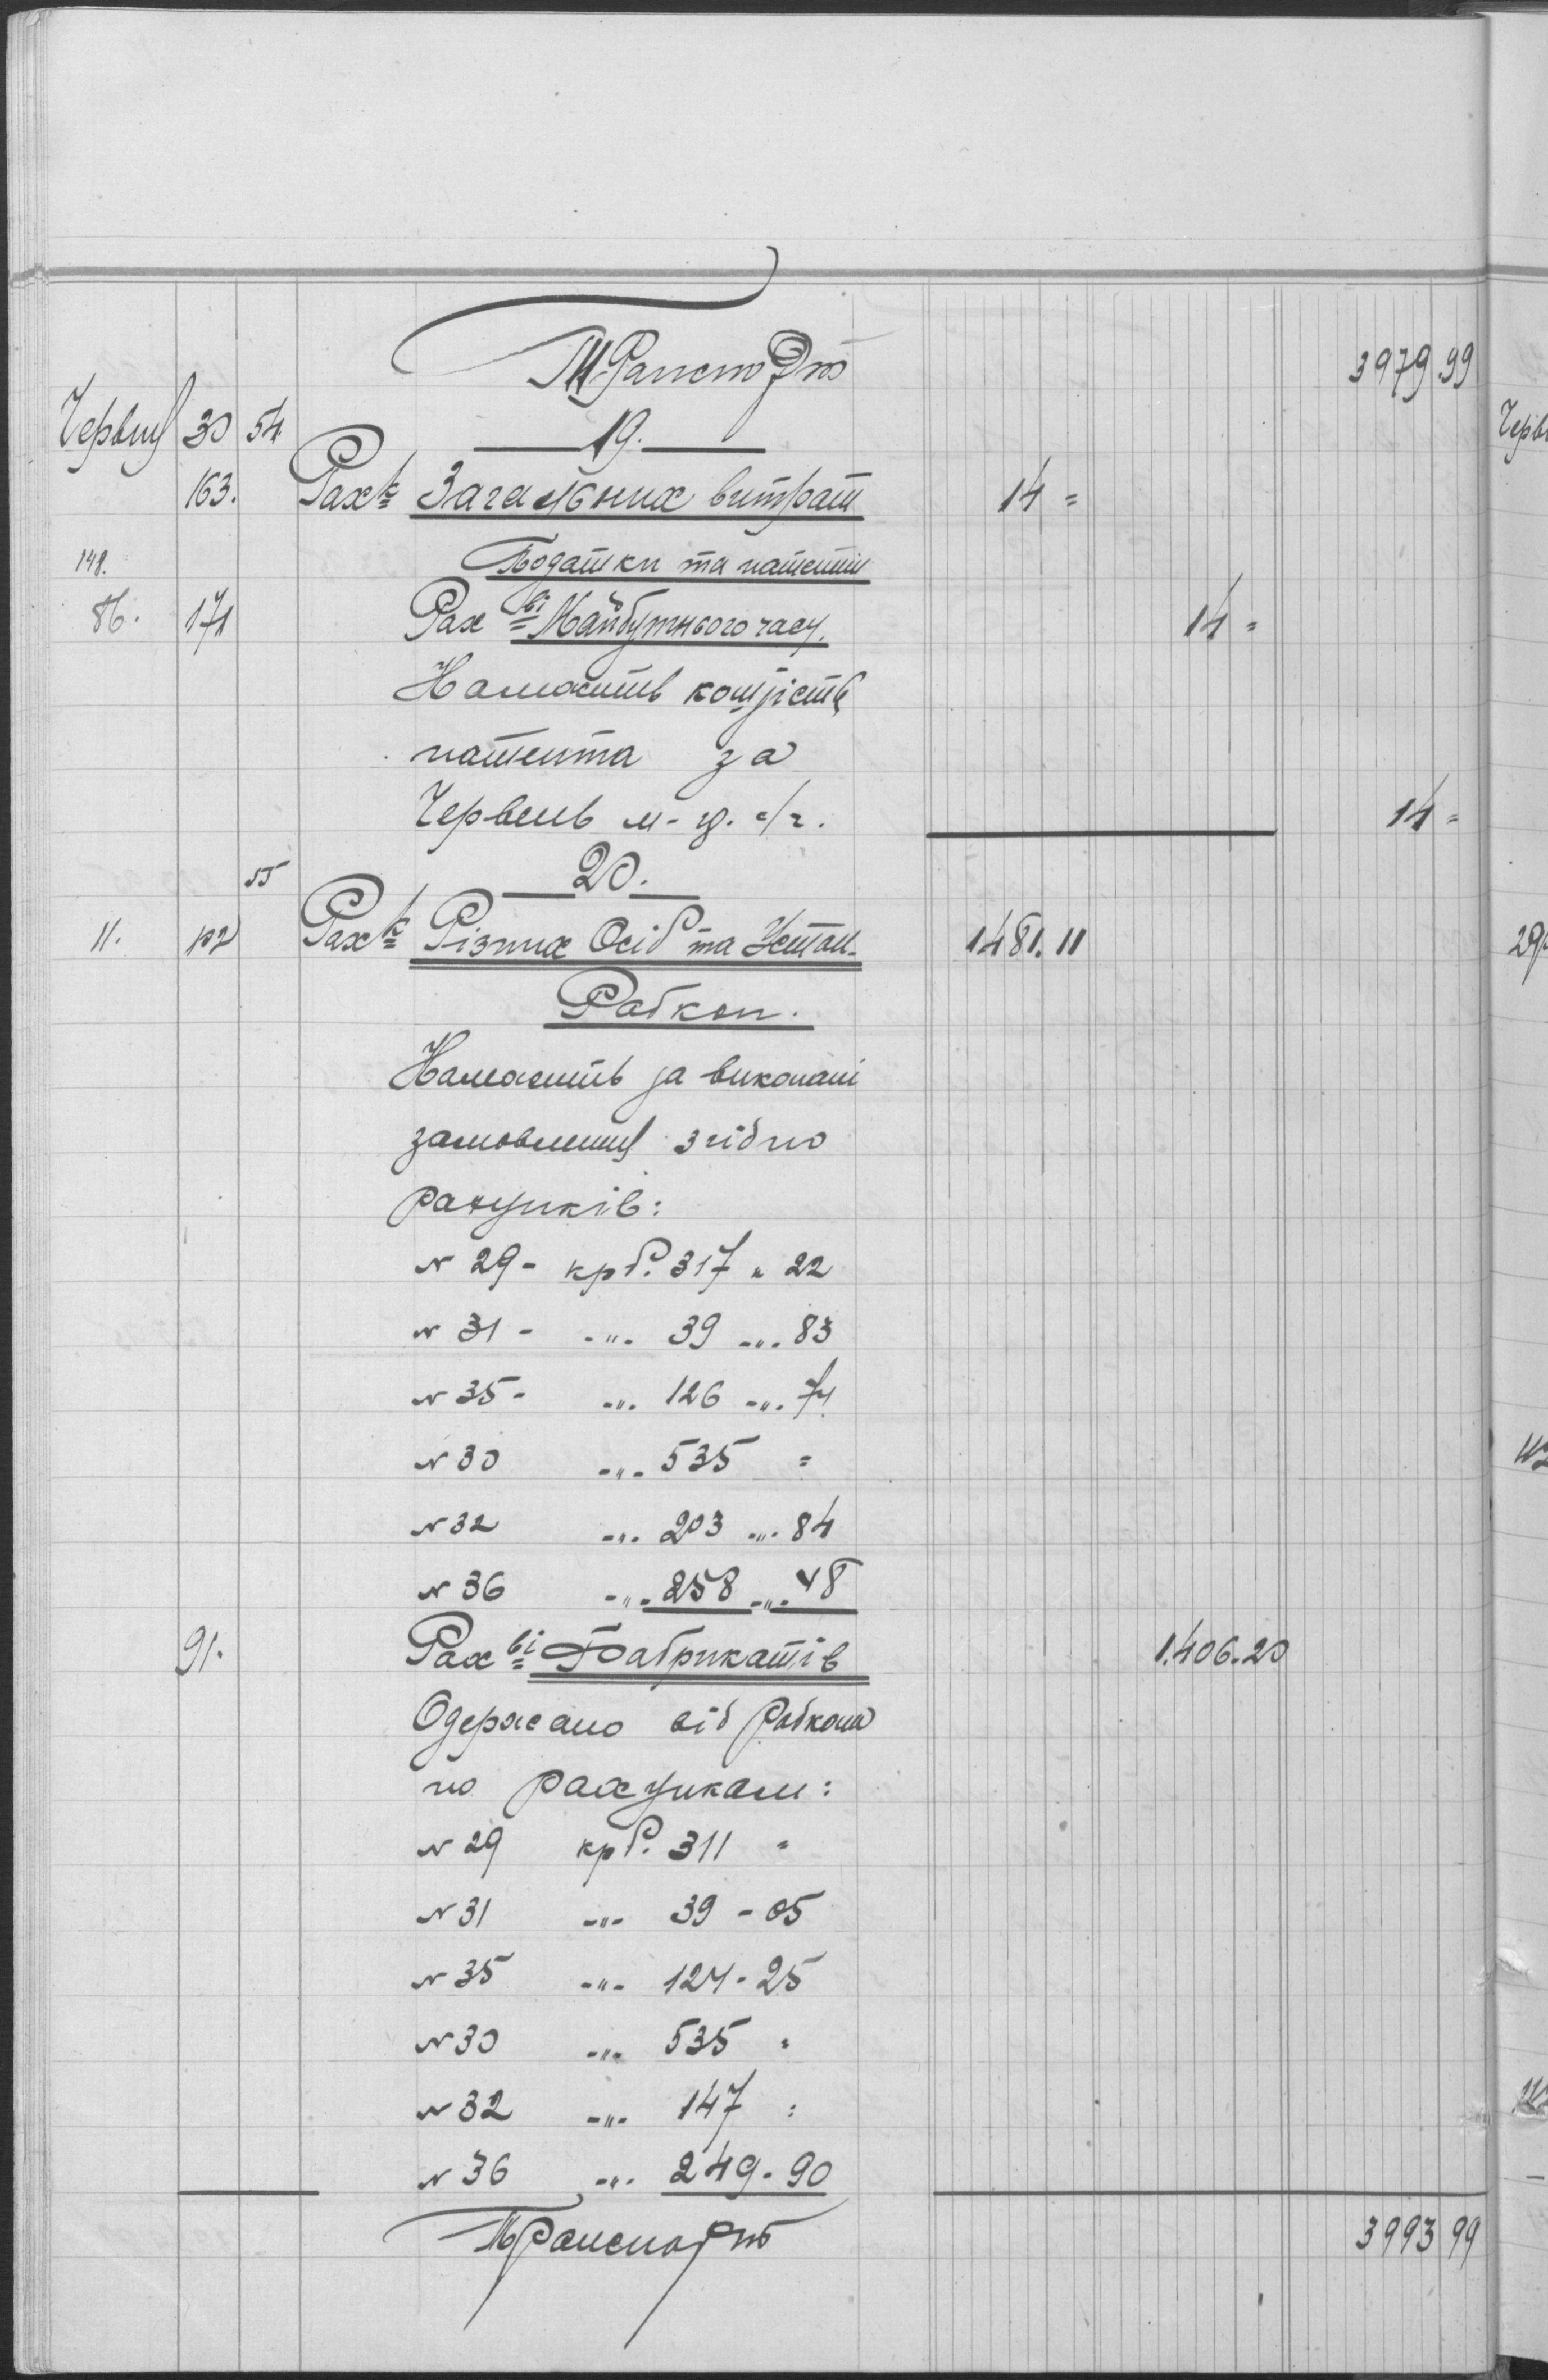 Транспорт 3979.99
Червня 30 54 19.
163. Рах-к Загальних витрат 14 =
Податки та патенти
148.
86. 171 Рах-ві Майбутнього часу. 14 =
Належить
патента за
Червень м-ць с/г. 14 =
55 20.
11. 102 Рах-к Різних Осіб та Устан. 1481.11
Рабкоп.
Належить за виконані
замовлення згідно
рахунків:
N 29 - крб. 317 " 22
N 31 - -"- 39 -"- 83
N 35 - -"- 126 -"- 74
N 30 -"- 535 =
N 32 -"- 203 -"- 84
N 36 -"- 258 -"- 48
91. Рах-ві Фабрикатів 1.406.20
Одержано від Рабкопа
по рахункам:
N 29 крб. 311 "
N 31 -"- 39 - 05
N 35 -"- 124 - 25
N 30 -"- 535 "
N 32 -"- 147 :
N 36 -"- 249 - 90
Транспорт 3993 99